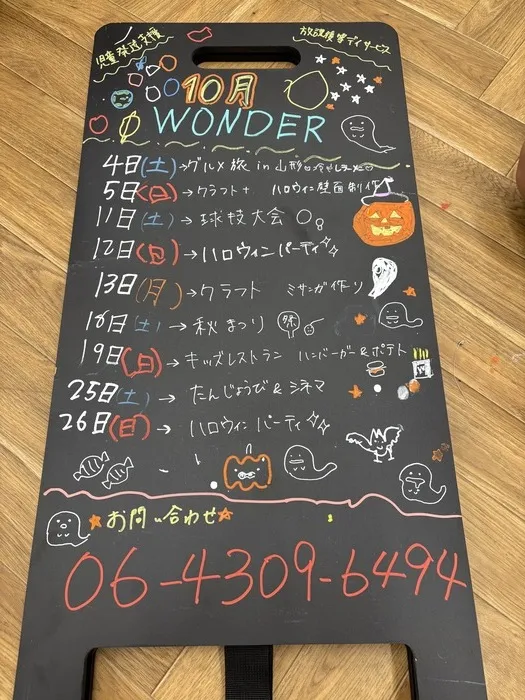 児童発達支援
放課後等デイサービス
10月
WONDER
4日(土)→グルメ旅 in 山形 冷やしラーメン
5日(日)→クラフト+ ハロウィン壁画制作
11日(土)→球技大会
12日(日)→ハロウィンパーティ
13日(月)→クラフト ミサンガ作り
18日(土)→秋まつり 祭
19日(日)→キッズレストラン ハンバーガー&ポテト
25日(土)→たんじょうび&シネマ
26日(日)→ハロウィンパーティ
お問い合わせ
06-4309-6494